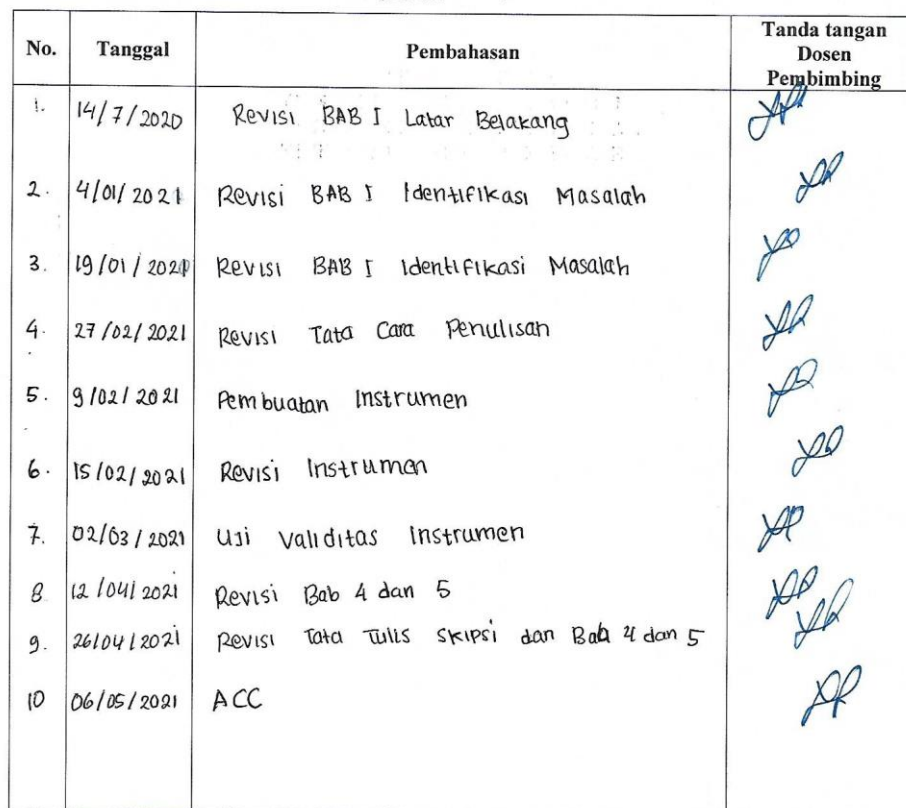 No. Tanggal Pembahasan Tanda tangan Dosen Pembimbing
1. 14/7/2020 Revisi BAB I Latar Belakang
2. 4/01/2021 Revisi BAB I Identifikasi Masalah
3. 19/01/2021 Revisi BAB I Identifikasi Masalah
4. 27/02/2021 Revisi Tata Cara Penulisan
5. 9/02/2021 Pembuatan Instrumen
6. 15/02/2021 Revisi Instrumen
7. 02/03/2021 Uji Validitas Instrumen
8 12/04/2021 Revisi Bab 4 dan 5
9. 26/04/2021 Revisi Tata Tulis Skipsi dan Bab 4 dan 5
10 06/05/2021 ACC